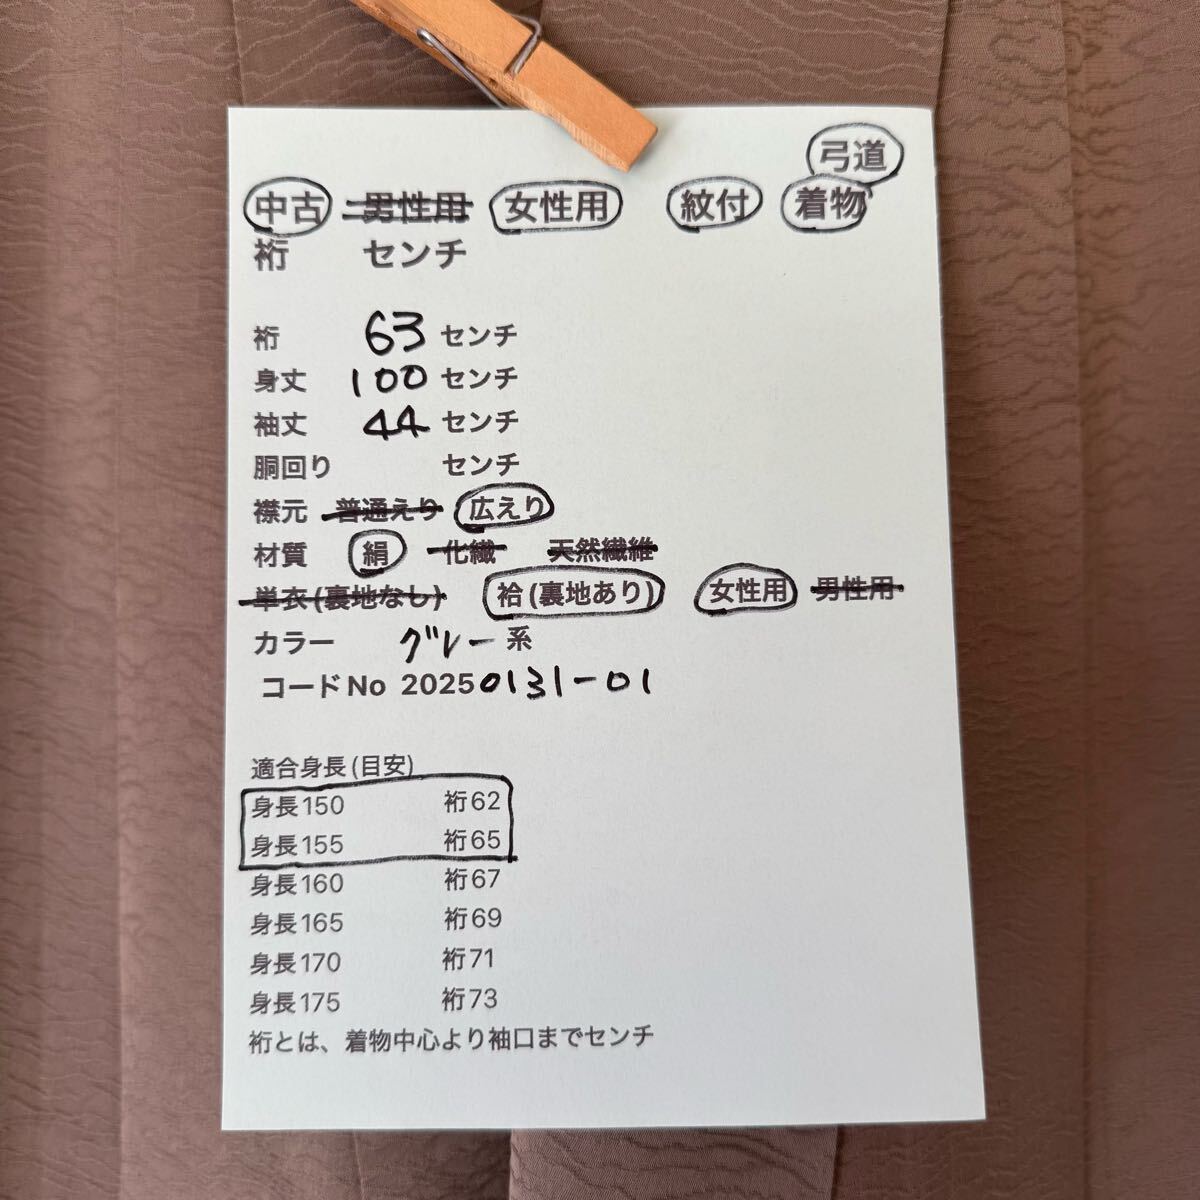 弓道
中古 男性用 女性用 紋付 着物
裄 センチ
裄 63 センチ
身丈 100 センチ
袖丈 44 センチ
胴回り センチ
襟元 普通えり 広えり
材質 絹 化繊 天然繊維
単衣(裏地なし) 袷(裏地あり) 女性用 男性用
カラー グレー系
コードNo 20250131-01
適合身長(目安)
身長150 裄62
身長155 裄65
身長160 裄67
身長165 裄69
身長170 裄71
身長175 裄73
裄とは、着物中心より袖口までセンチ